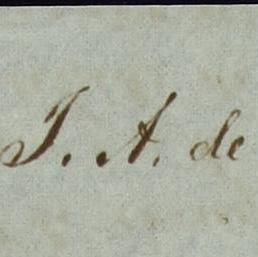 J. A. de